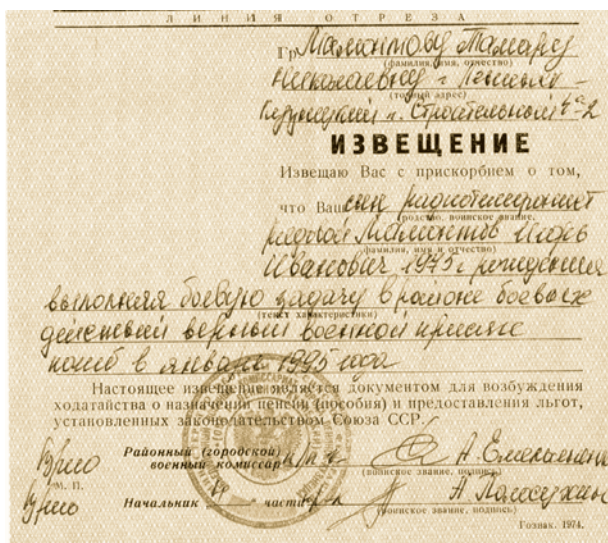 ЛИНИЯ ОТРЕЗА
Гр. Малинтову Тамару
(фамилия, имя, отчество)
Николаевну г. Ленинск-
(точный адрес)
Кузнецкий п. Строительный 4а-2
ИЗВЕЩЕНИЕ
Извещаю Вас с прискорбием о том,
что Ваш сын радиотелефонист
(родство, воинское звание,
рядовой Малинтов Игорь
фамилия, имя и отчество)
Иванович 1975 г. рождения
выполняя боевую задачу в районе боевых
(текст характеристики)
действий верный военной присяге
погиб в январе 1995 года
Настоящее извещение является документом для возбуждения
ходатайства о назначении пенсии (пособия) и предоставления льгот,
установленных законодательством Союза ССР.
Врио Районный (городской)
военный комиссар п/п-к А. Емельяненко
(воинское звание, подпись)
М. П.
Врио Начальник части А.
(воинское звание, подпись)
Гознак. 1974.